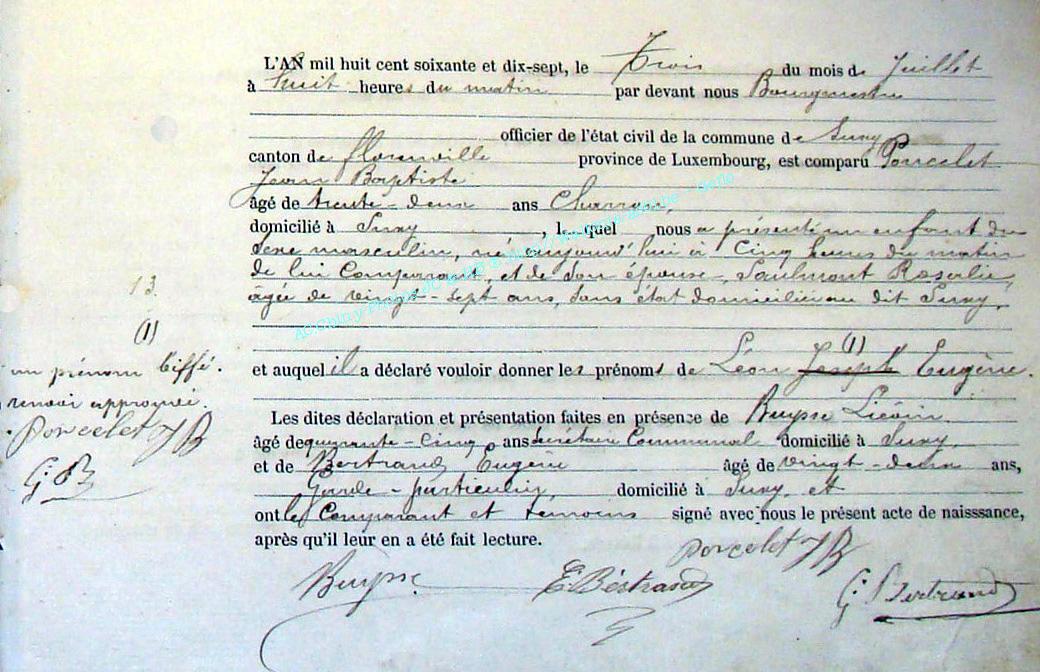 L'AN mil huit cent soixante et dix-sept, le Trois du mois de Juillet
à huit heures du matin par devant nous Bourgmestre
officier de l'état civil de la commune de Suxy
canton de florenville province de Luxembourg, est comparu Poncelet
Jean Baptiste
âgé de trente-deux ans Charron,
domicilié à Suxy, lequel nous a présenté un enfant du
sexe masculin, né aujourd'hui à Cinq heures du matin
de lui Comparant, et de son épouse, Saulmont Rosalie,
âgée de vingt-sept ans, sans état domiciliée au dit Suxy,
13.
(1)
un prénom biffé.
renvoi approuvé.
Poncelet JB
G B
(1)
et auquel il a déclaré vouloir donner les prénoms de Léon Joseph Eugène.
Les dites déclaration et présentation faites en présence de Buysse Liévin
âgé de quarante-Cinq ans Secrétaire Communal domicilié à Suxy
et de Bertrand, Eugène âgé de vingt-deux ans,
Garde-particulier, domicilié à Suxy, et
ont les Comparant et temoins signé avec nous le présent acte de naisssance,
après qu'il leur en a été fait lecture.
Poncelet JB
Buysse E Bertrand G Bertrand